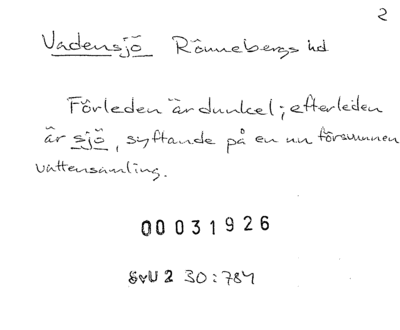 2
Vadensjö Rönnebergs hd
Förleden är dunkel; efterleden
är sjö, syftande på en nu försvunnen
vattensamling.
00031926
SvU 2 30:784